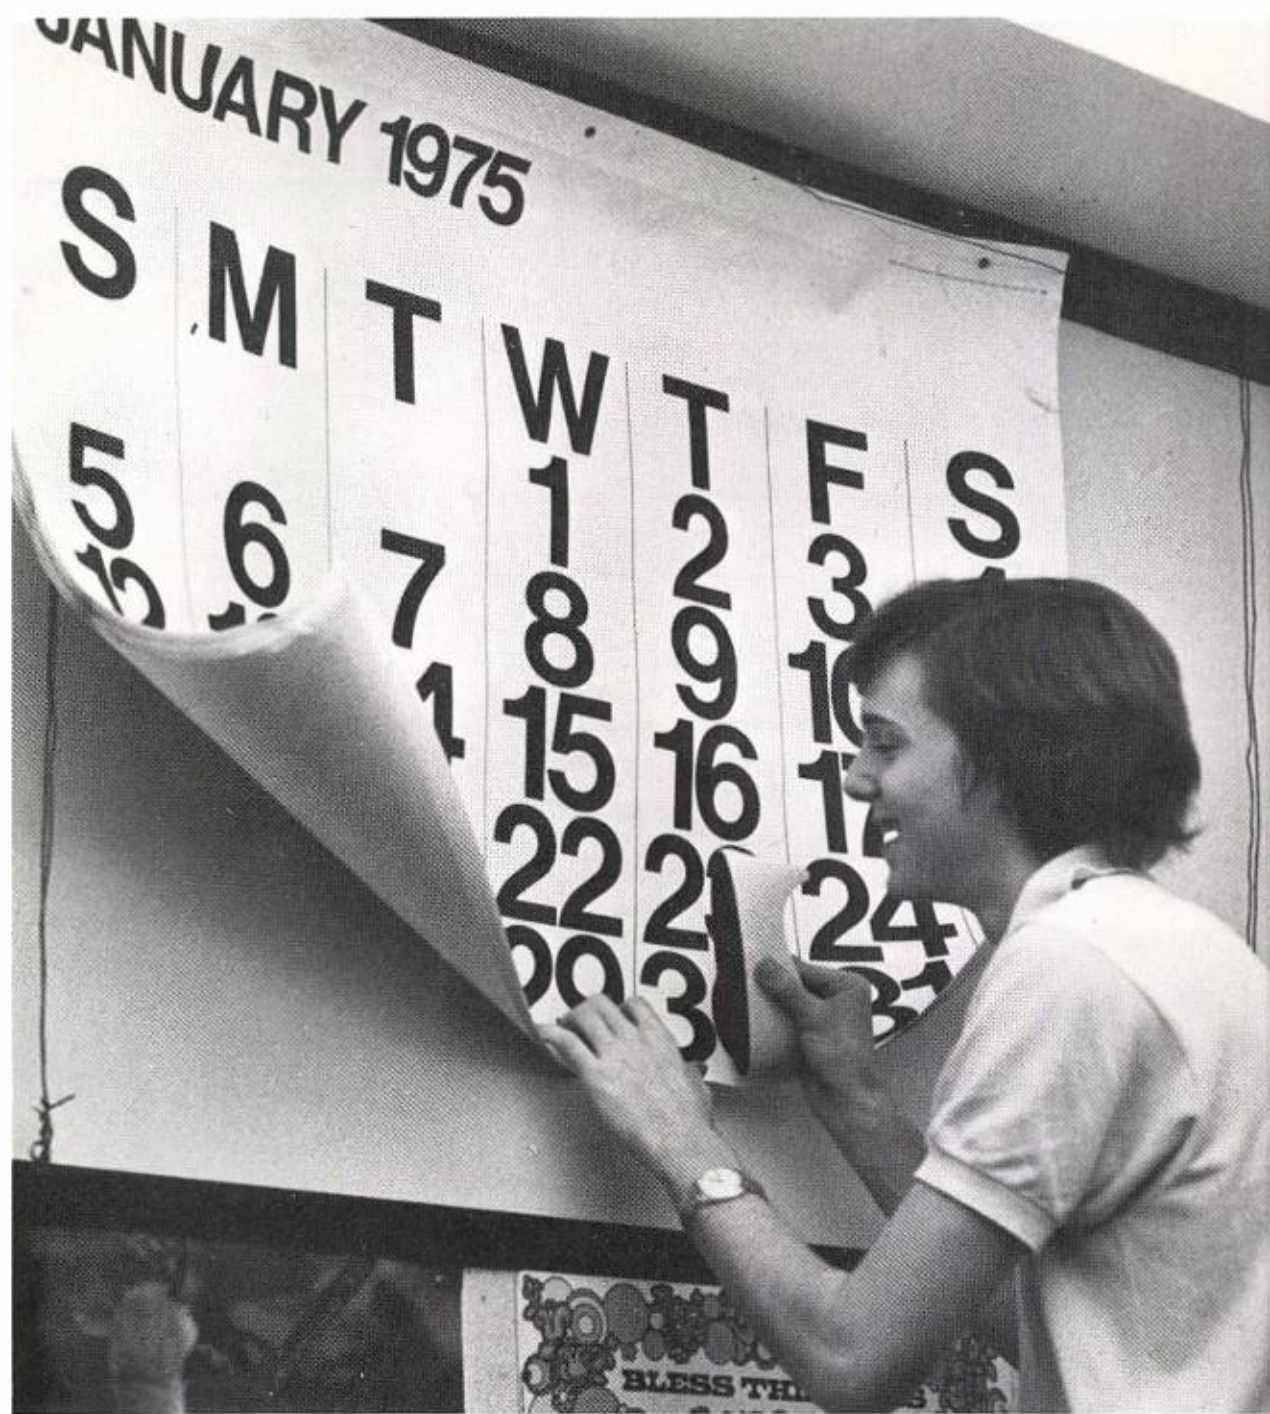 JANUARY 1975
S M T W T F S
1 2 3
5 6 7 8 9 10
12 14 15 16 17
22 24
29 31
BLESS